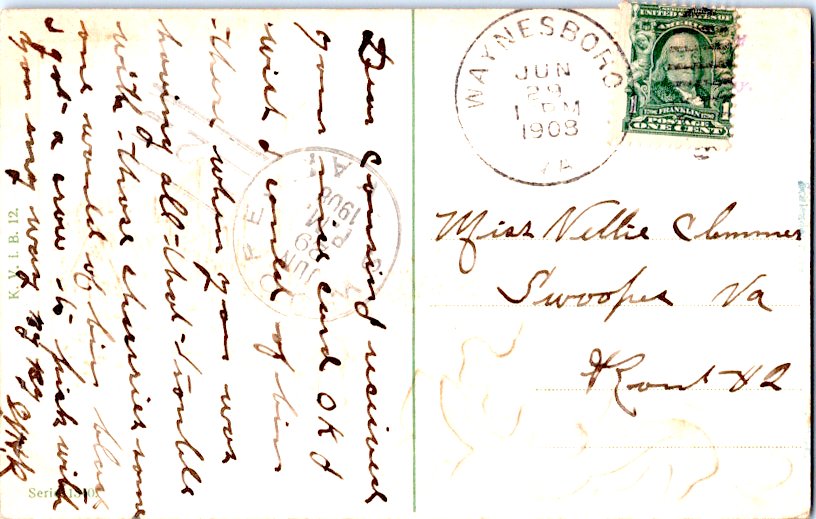 Dear Cousin I received
your nice card OK I
wish I could of bin
there when you was
having all that trouble
with those charries some
one would of bin black
I got a crow to pick with
you my way by by
K. V. i. B. 12.
Serie
WAYNESBORO
JUN
29
1 PM
1908
VA
UNITED STATES OF
AMERICA
1
FRANKLIN
POSTAGE
ONE CENT
JUN
29
PM
1908
Miss Nellie Clemmer
Swoopes Va
Rout #2